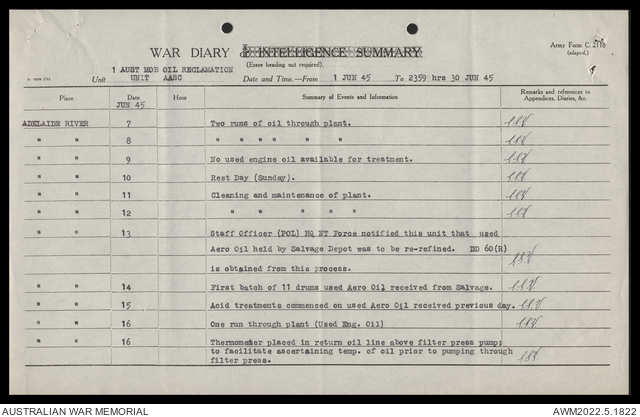 WAR DIARY or INTELLIGENCE SUMMARY
Army Form C. 2118
(adapted.)
(Erase heading not required).
1 AUST MOB OIL RECLAMATION
Unit UNIT AASC
Date and Time.—From 1 JUN 45 To 2359 hrs 30 JUN 45
Place Date Hour Summary of Events and Information Remarks and references to Appendices, Diaries, &c.
JUN 45
ADELAIDE RIVER 7 Two runs of oil through plant.
" " 8 " " " " " "
" " 9 No used engine oil available for treatment.
" " 10 Rest Day (Sunday).
" " 11 Cleaning and maintenance of plant.
" " 12 " " " "
" " 13 Staff Officer (POL) HQ NT Force notified this unit that used
Aero Oil held by Salvage Depot was to be re-refined. DD 60(R)
is obtained from this process.
" " 14 First batch of 11 drums used Aero Oil received from Salvage.
" " 15 Acid treatments commenced on used Aero Oil received previous day.
" " 16 One run through plant (Used Eng. Oil)
" " 16 Thermometer placed in return oil line above filter press pump;
to facilitate ascertaining temp. of oil prior to pumping through
filter press.
AUSTRALIAN WAR MEMORIAL AWM2022.5.1822